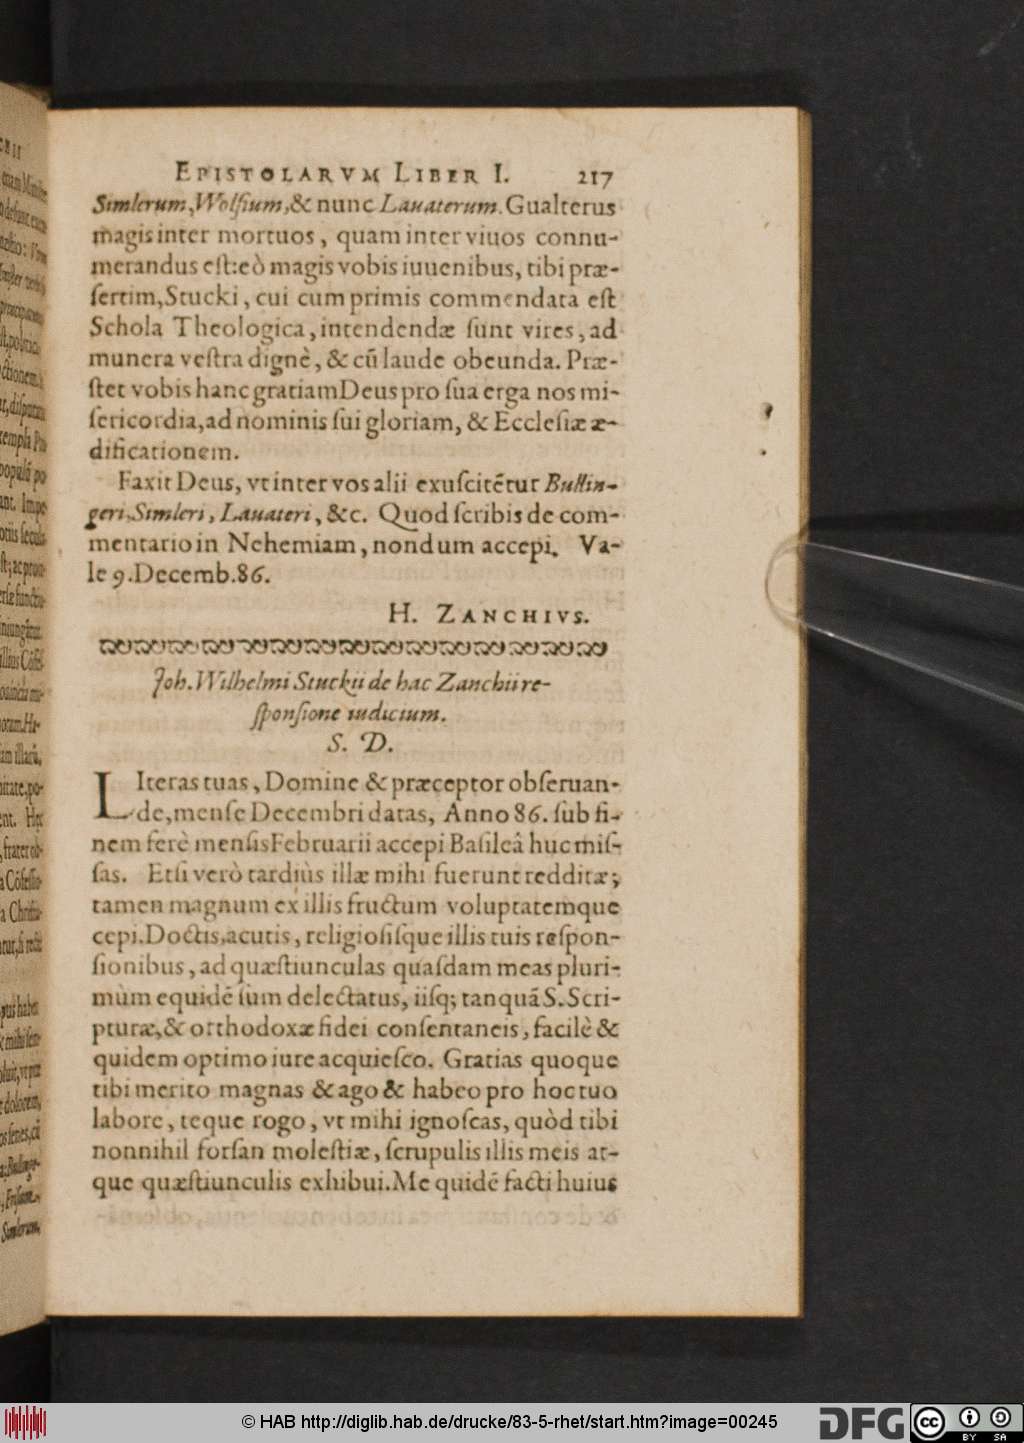 EPISTOLARVM LIBER I. 217
Simlerum, Wolfium, & nunc Lauaterum. Gualterus
magis inter mortuos, quam inter viuos connu-
merandus eſt: eò magis vobis iuuenibus, tibi præ-
ſertim, Stucki, cui cum primis commendata eſt
Schola Theologica, intendendæ ſunt vires, ad
munera veſtra dignè, & cū laude obeunda. Præ-
ſtet vobis hanc gratiam Deus pro ſua erga nos mi-
ſericordia, ad nominis ſui gloriam, & Eccleſiæ æ-
dificationem.
Faxit Deus, vt inter vos alii exuſcitētur Bullin-
geri, Simleri, Lauateri, &c. Quod ſcribis de com-
mentario in Nehemiam, nondum accepi. Va-
le 9. Decemb. 86.
H. ZANCHIVS.
Joh. Wilhelmi Stuckii de hac Zanchii re-
ſponſione iudicium.
S. D.
LIteras tuas, Domine & præceptor obſeruan-
de, menſe Decembri datas, Anno 86. ſub fi-
nem ferè menſis Februarii accepi Baſileâ huc miſ-
ſas. Etſi verò tardiùs illæ mihi fuerunt redditæ;
tamen magnum ex illis fructum voluptatemque
cepi. Doctis, acutis, religioſiſque illis tuis reſpon-
ſionibus, ad quæſtiunculas quaſdam meas pluri-
mùm equidē ſum delectatus, iiſq; tanquā S. Scri-
pturæ, & orthodoxæ fidei conſentaneis, facilè &
quidem optimo iure acquieſco. Gratias quoque
tibi merito magnas & ago & habeo pro hoc tuo
labore, teque rogo, vt mihi ignoſcas, quòd tibi
nonnihil forſan moleſtiæ, ſcrupulis illis meis at-
que quæſtiunculis exhibui. Me quidē facti huius
© HAB http://diglib.hab.de/drucke/83-5-rhet/start.htm?image=00245
DFG
cc BY SA